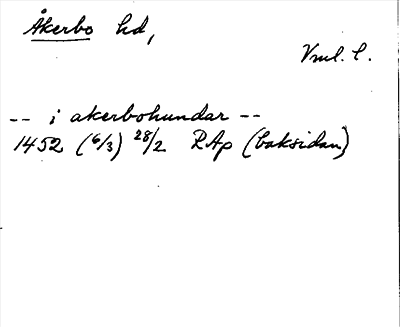 Åkerbo hd,
Vml. l.
-- i akerbohundar --
1452 (6/3) 28/2 RAp (baksidan)